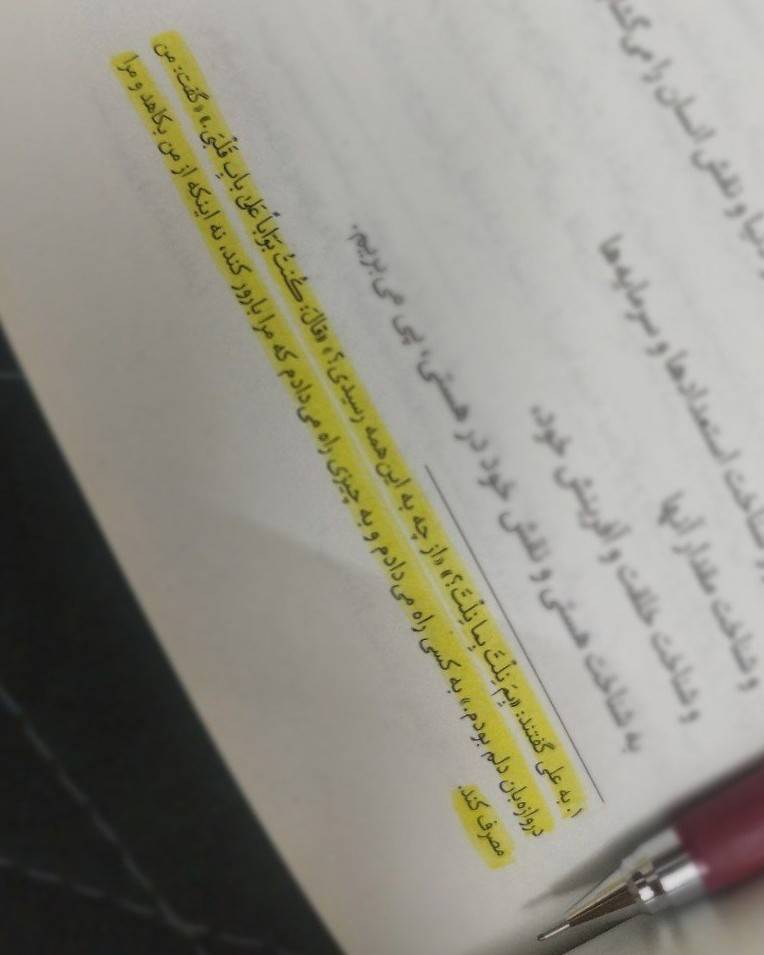 دنیا و نقش انسان را
شناخت استعدادها و سرمایه‌ها
و شناخت مقدار آنها
و شناخت خلقت و آفرینش خود،
به شناخت هستی و نقش خود در هستی، پی می‌بریم.
۱. به علی گفتند: «بِمَ نِلْتَ بِما نِلْتَ؟» «از چه به این همه رسیدی؟» «قالَ: کُنْتُ بَوّاباً عَلی بابِ قَلْبی.» «گفت: من
دروازه‌بان دلم بودم.» به کسی راه می‌دادم و به چیزی راه می‌دادم که مرا بارور کند، نه اینکه از من بکاهد و مرا
مصرف کند.